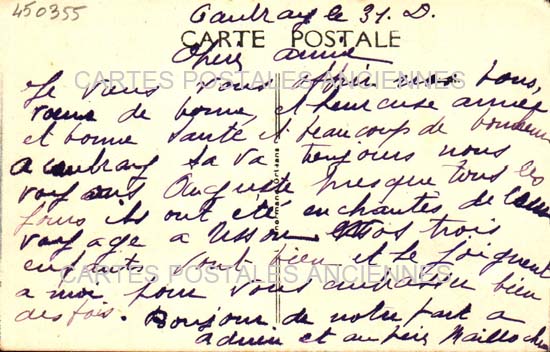 450355
Caubray le 31. D.
CARTE POSTALE
Cheri Amie
CARTES POSTALES ANCIENNES
Je viens vous offrir nos bons
vœux de bonne, et heureuse année
et bonne santé et beaucoup de bonheur
a Caubray sa va toujours nous
voyons Auguste presque tous les
jours ils ont été enchantés de
voyage a Usson Nos trois
enfants vont bien et se joignent
CARTES POSTALES ANCIENNES
a moi pour vous embrasser bien
des fois. Bonjour de notre part a
Adrien et au père